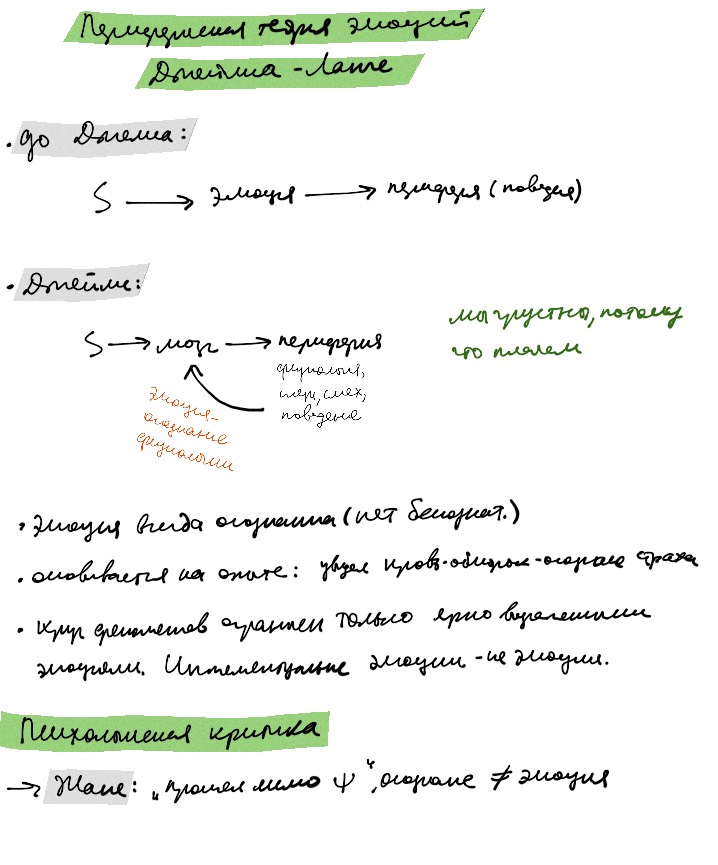 Периферическая теория эмоций
Джеймса - Ланге
• до Джемса:
S → эмоция → периферия (поведения)
• Джеймс:
S → мозг → периферия
мы грустны, потому
что плачем
физиология,
смех,
поведение
Эмоция-
осознание
физиологии
• Эмоция всегда осознанна (нет бессознат.)
• основывается на опыте: увидел кровь - обморок - осознание страха
• Круг феноменов ограничен только ярко выраженными
эмоциями. Интеллектуальные эмоции - не эмоции.
Психологическая критика
→ Жане: „прошел мимо Ψ“, осознание ≠ эмоция